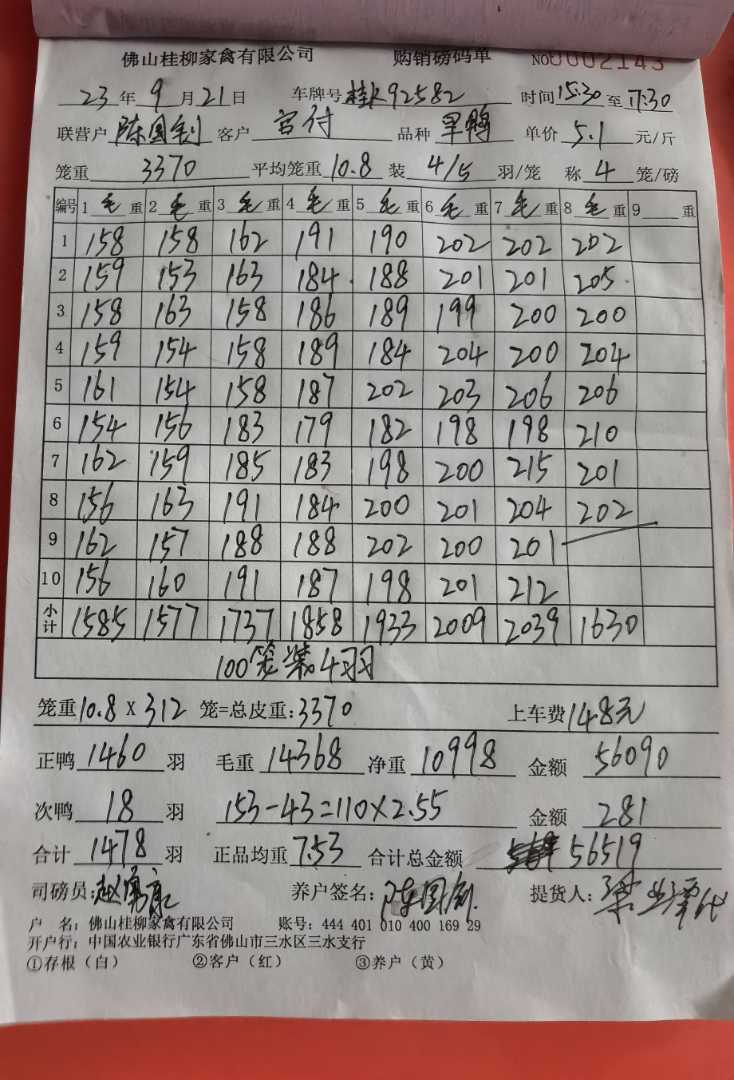 佛山桂柳家禽有限公司 购销磅码单 NO0002143
23年9月21日 车牌号 桂K92582 时间15:30至17:30
联营户 陈国钊 客户 宫付 品种 旱鸭 单价 5.1 元/斤
笼重 3370 平均笼重 10.8 装 4/5 羽/笼 称 4 笼/磅
编号 1 毛 重 2 毛 重 3 毛 重 4 毛 重 5 毛 重 6 毛 重 7 毛 重 8 毛 重 9 重
1 158 158 162 191 190 202 202 202
2 159 153 163 184 188 201 201 205
3 158 163 158 186 189 199 200 200
4 159 154 158 189 184 204 200 204
5 161 154 158 187 202 203 206 206
6 154 156 183 179 182 198 198 210
7 162 159 185 183 198 200 215 201
8 156 163 191 184 200 201 204 202
9 162 157 188 188 202 200 201
10 156 160 191 187 198 201 212
小计 1585 1577 1737 1858 1933 2009 2039 1630
100笼装4羽
笼重10.8X312 笼=总皮重:3370 上车费148元
正鸭 1460 羽 毛重 14368 净重 10998 金额 56090
次鸭 18 羽 153-43=110X2.55 金额 281
合计 1478 羽 正品均重 7.53 合计总金额 56519
司磅员: 养户签名: 陈国钊 提货人:
户 名：佛山桂柳家禽有限公司 账号：444 401 010 400 169 29
开户行：中国农业银行广东省佛山市三水区三水支行
①存根（白） ②客户（红） ③养户（黄）